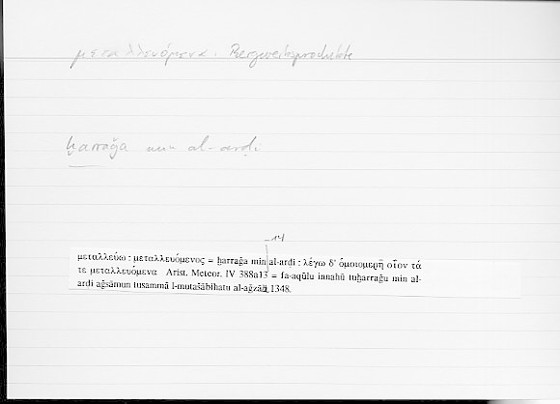 μεταλλευόμενα. Bergwerksprodukte
ḫarraǧa min al-arḍi
–14
μεταλλεύω : μεταλλευόμενος = ḫarraǧa min al-arḍi : λέγω δ' ὁμοιομερῆ οἷον τά
τε μεταλλευόμενα Arist. Meteor. IV 388a13 = fa-aqūlu innahū tuḫarraǧu min al-
arḍi aǧsāmun tusammā l-mutašābihatu al-aǧzāʾi 1348.